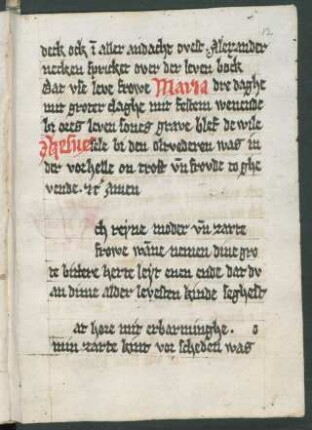 12
deck ock i aller andacht ovest Alexander
necken spricket over der leven bock
Dat vse leve frowe Maria dre daghe
mit groter claghe mit stetem wenende
bi ores leven sones grave blef de wile
Ihesus sele bi den oltvederen was in
der vorhelle on trost vn froude to ghe
vende. Amen
ch reyne moder vn zarte
frowe wane nemen dine gro
te bittere herte leyt enen ende dat du
an dime alder levesten kinde seghest
at hore mit erbarminghe. o
min zarte kint vor scheden was